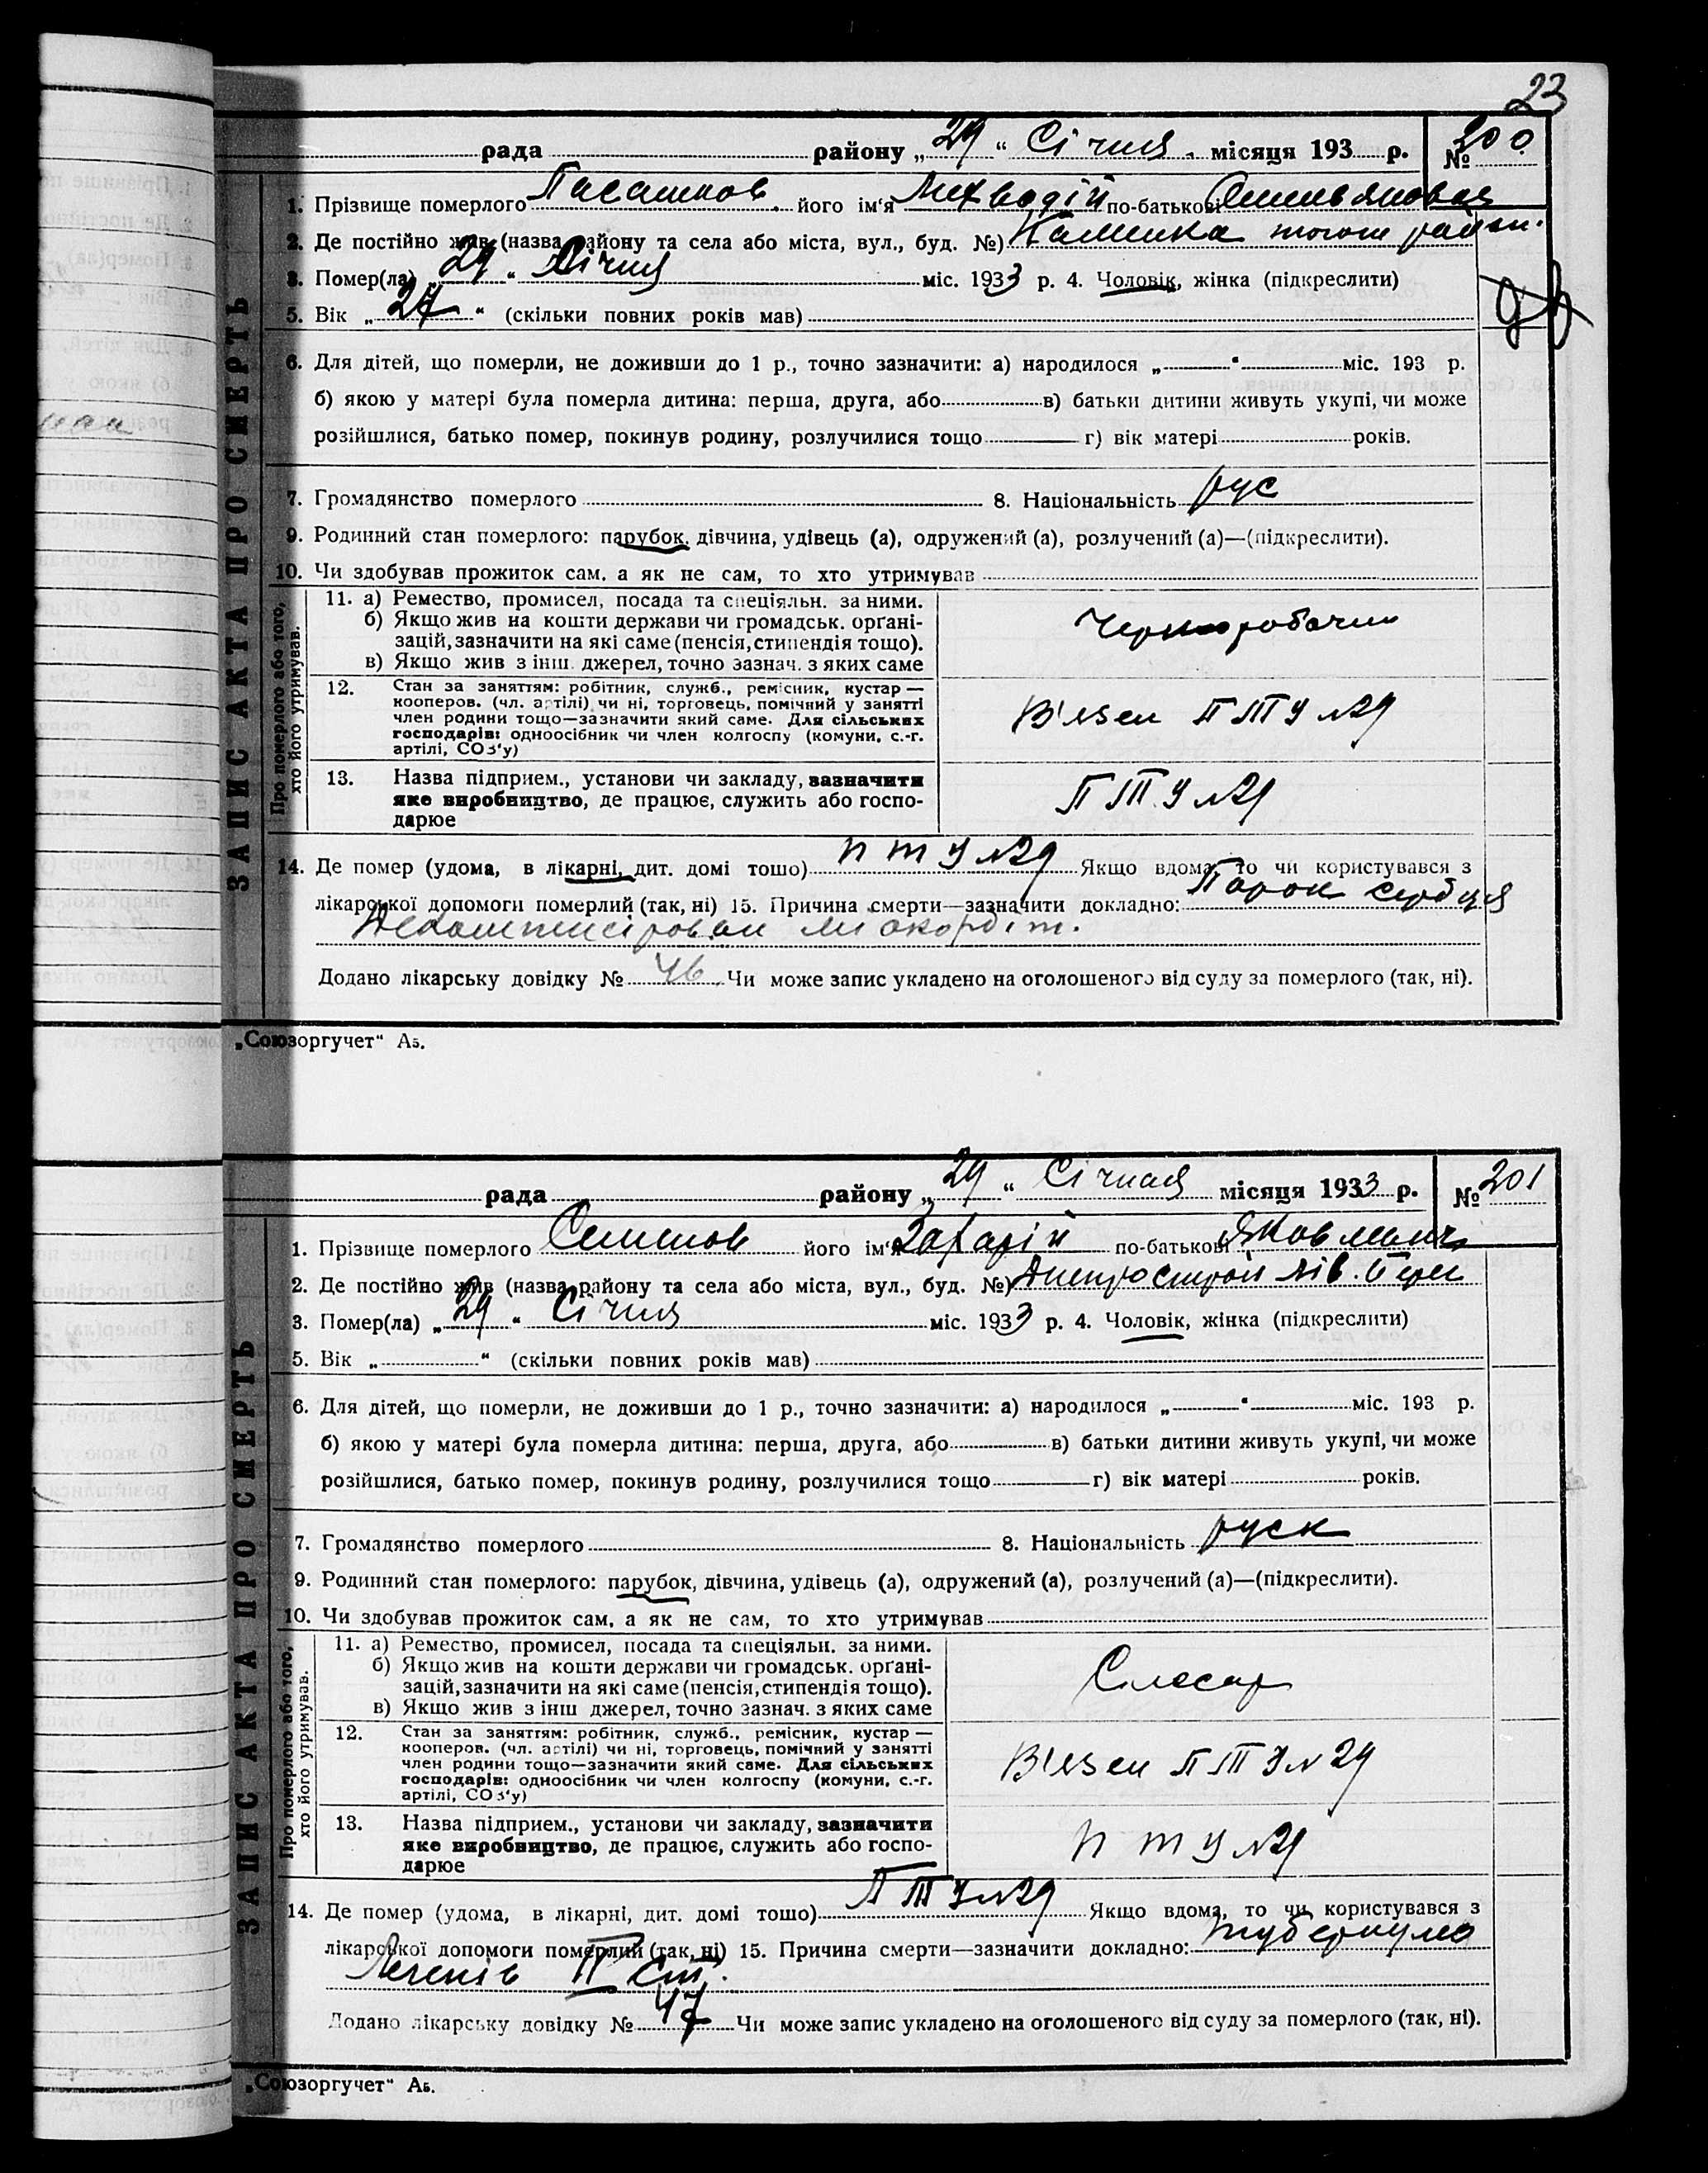 23
рада району „29“ Січня місяця 193 р. № 200
ЗАПИС АКТА ПРО СМЕРТЬ
1. Прізвище померлого його ім'я по-батькові
2. Де постійно жив (назва району та села або міста, вул., буд. №) Каменка того району
3. Помер(ла) „29“ Січня міс. 1933 р. 4. Чоловік, жінка (підкреслити)
5. Вік „24“ (скільки повних років мав)
6. Для дітей, що померли, не доживши до 1 р., точно зазначити: а) народилося „ “ міс. 193 р.
б) якою у матері була померла дитина: перша, друга, або в) батьки дитини живуть укупі, чи може
розійшлися, батько помер, покинув родину, розлучилися тощо г) вік матері років.
7. Громадянство померлого 8. Національність рус
9. Родинний стан померлого: парубок, дівчина, удівець (а), одружений (а), розлучений (а)—(підкреслити).
10. Чи здобував прожиток сам, а як не сам, то хто утримував
Про померлого або того, хто його утримував.
11. а) Ремество, промисел, посада та спеціяльн. за ними.
б) Якщо жив на кошти держави чи громадськ. орґані-
зацій, зазначити на які саме (пенсія, стипендія тощо).
в) Якщо жив з інш. джерел, точно зазнач. з яких саме
Черноробочий
12. Стан за заняттям: робітник, служб., ремісник, кустар —
кооперов. (чл. артілі) чи ні, торговець, помічний у занятті
член родини тощо—зазначити який саме. Для сільських
господарів: одноосібник чи член колгоспу (комуни, с.-г.
артілі, СОЗ'у)
В'язен П Т У №29
13. Назва підприєм., установи чи закладу, зазначити
яке виробництво, де працює, служить або госпо-
дарює
П Т У №29
14. Де помер (удома, в лікарні, дит. домі тощо) П Т У №29 Якщо вдома, то чи користувався з
лікарської допомоги померлий (так, ні) 15. Причина смерти—зазначити докладно: Порок сердця
міокордіт.
Додано лікарську довідку № 46 Чи може запис укладено на оголошеного від суду за померлого (так, ні).
„Союзоргучет“ А5.
рада району „29“ Січная місяця 1933 р. № 201
ЗАПИС АКТА ПРО СМЕРТЬ
1. Прізвище померлого його ім'я Захарій по-батькові Яковлевич
2. Де постійно жив (назва району та села або міста, вул., буд. №) Днепрострой лів.
3. Помер(ла) „29“ Січня міс. 1933 р. 4. Чоловік, жінка (підкреслити)
5. Вік „ “ (скільки повних років мав)
6. Для дітей, що померли, не доживши до 1 р., точно зазначити: а) народилося „ “ міс. 193 р.
б) якою у матері була померла дитина: перша, друга, або в) батьки дитини живуть укупі, чи може
розійшлися, батько помер, покинув родину, розлучилися тощо г) вік матері років.
7. Громадянство померлого 8. Національність руск
9. Родинний стан померлого: парубок, дівчина, удівець (а), одружений (а), розлучений (а)—(підкреслити).
10. Чи здобував прожиток сам, а як не сам, то хто утримував
Про померлого або того, хто його утримував.
11. а) Ремество, промисел, посада та спеціяльн. за ними.
б) Якщо жив на кошти держави чи громадськ. орґані-
зацій, зазначити на які саме (пенсія, стипендія тощо).
в) Якщо жив з інш джерел, точно зазнач. з яких саме
Слесар
12. Стан за заняттям: робітник, служб., ремісник, кустар —
кооперов. (чл. артілі) чи ні, торговець, помічний у занятті
член родини тощо—зазначити який саме. Для сільських
господарів: одноосібник чи член колгоспу (комуни, с.-г.
артілі, СОЗ'у)
В'язен П Т У №29
13. Назва підприєм., установи чи закладу, зазначити
яке виробництво, де працює, служить або госпо-
дарює
П Т У №29
14. Де помер (удома, в лікарні, дит. домі тощо) П Т У №29 Якщо вдома, то чи користувався з
лікарської допомоги померлий (так, ні) 15. Причина смерти—зазначити докладно: туберкульо
Легенів ст.
Додано лікарську довідку № 47 Чи може запис укладено на оголошеного від суду за померлого (так, ні).
„Союзоргучет“ А5.